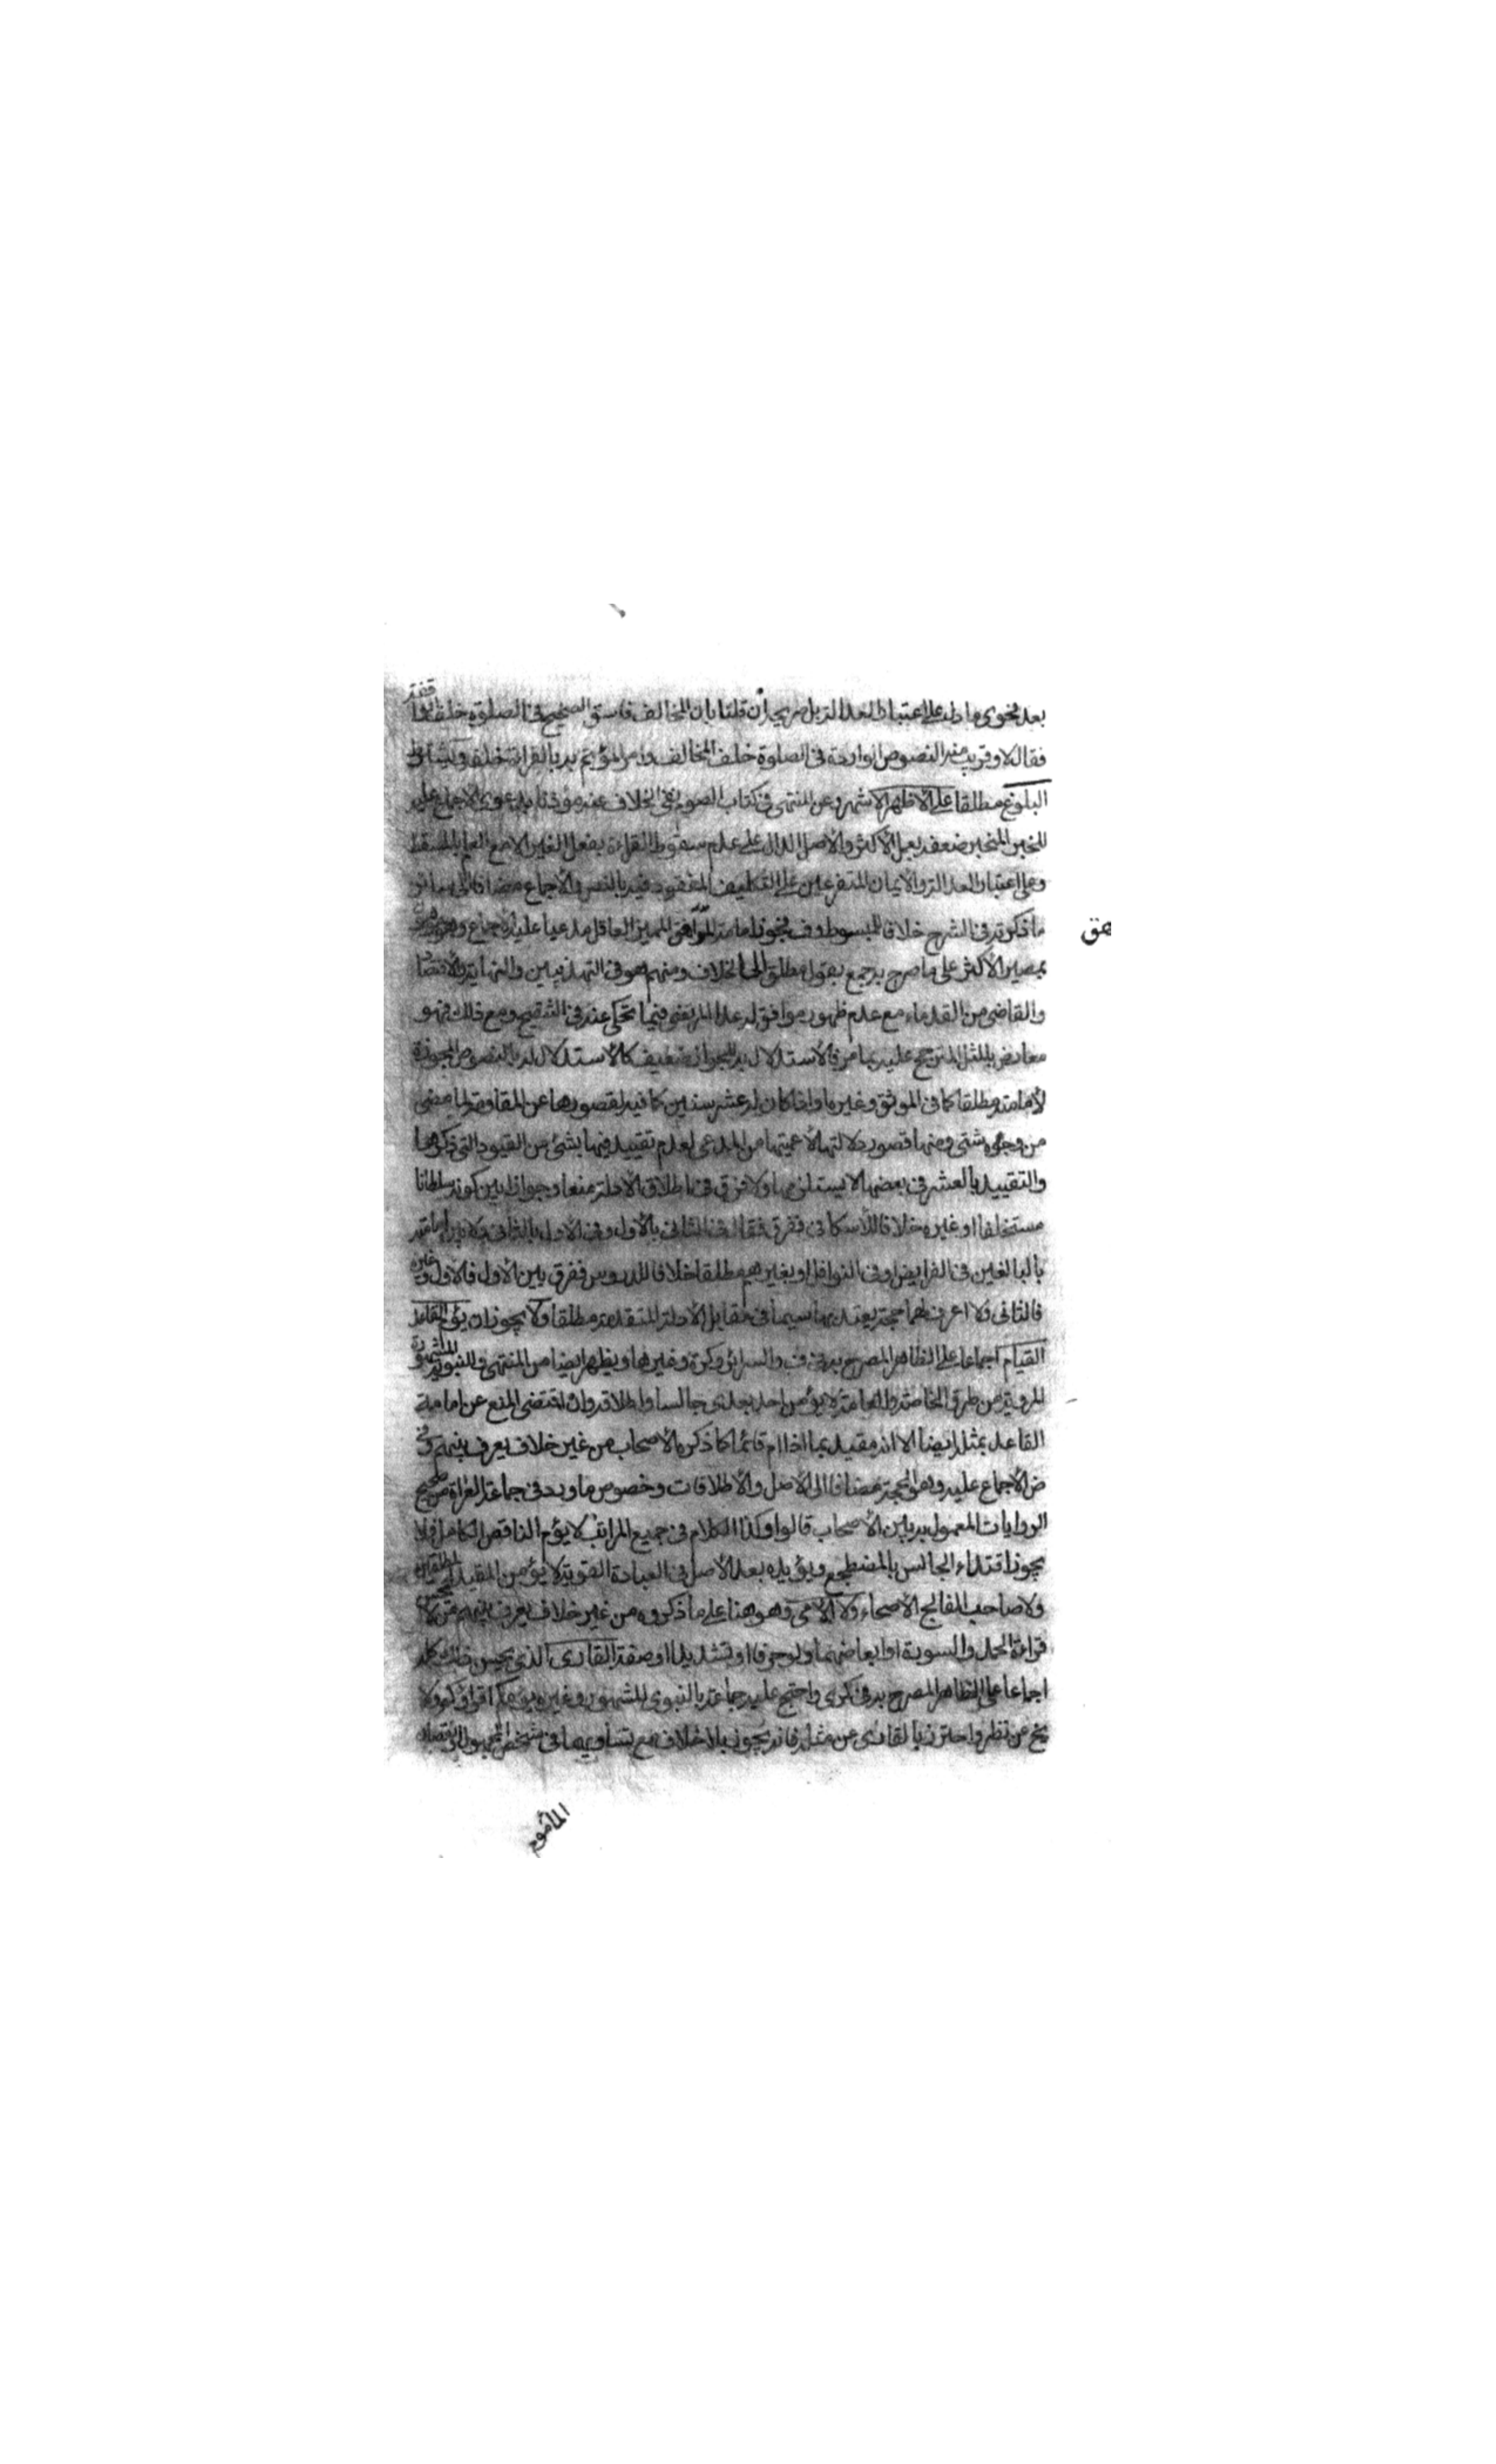 بعد فحوى ما دل على اعتبار العدالة بل صريحه ان قلنا بان المخالف فاسق الصحيح في الصلوة خلف الواقفة
فقال لا وقريب منه النصوص الواردة في الصلوة خلف المخالف وامر المؤتم به بالقرائة خلفه ويشترط
البلوغ مطلقا على الاظهر الاشهر وعن المنتهى في كتاب الصوم نفي الخلاف عنه مؤذنا بدعوى الاجماع عليه
للخبر المنجبر ضعفه بعمل الأكثر والأصل الدال على عدم سقوط القراءة بفعل الغير الا مع العلم بالمسقط
وعلى اعتبار العدالة والايمان المتفرعين على التكليف المفقود فيه بالنص والاجماع مضافا الى ساير
ما ذكرته في الشرح خلافا للمبسوط وف فجوزا امامة المراهق المميز العاقل مدعيا عليه الاجماع وهو موهون
بمصير الأكثر على ما صرح به جمع بقول مطلق الى الخلاف ومنهم هو في التهذيبين والنهاية والاقتصاد
والقاضي من القدماء مع عدم ظهور موافق له عدا المرتضى فيما حكي عنه في التنقيح ومع ذلك فهو
معارض بالمثل المترجح عليه بما مر فالاستدلال به للجواز ضعيف كالاستدلال له بالنصوص المجوزة
لأمامته مطلقا كما في الموثق وغيره او اذا كان له عشر سنين كما فيه لقصورها عن المقاومة لما مضى
من وجوه شتى ومنها قصور دلالتها لأعميتها من المدعى لعدم تقييد فيها بشئ من القيود التي ذكرها
والتقييد بالعشر في بعضها لا يستلزمها ولا فرق في اطلاق الادلة منعا وجوازا بين كونه سلطانا
مستخلفا او غيره خلافا للأسكافي ففرق فقال في الثاني بالأول وفي الأول بالثاني ولا بين امامته
بالبالغين في الفرايض او في النوافل او بغيرهم مطلقا خلافا للدروس ففرق بين الأول فالاول وغيره
فالثاني ولا اعرف لهما حجة يعتد بها سيما في مقابل الأدلة المتقدمة مطلقا ولا يجوز ان يؤم القاعد
القيام اجماعا على الظاهر المصرح به في ف والسرائر وكرة وغيرها ويظهر ايضا من المنتهى وللنبوية المشهورة
المروية من طرق الخاصة والعامة لا يؤمن احد بعدي جالسا واطلاقه وان اقتضى المنع عن امامة
القاعد بمثله ايضا الا انه مقيد بما اذا ام قائما كما ذكره الأصحاب من غير خلاف يعرف بينهم وفي
ض الأجماع عليه وهو الحجة مضافا الى الاصل والأطلاقات وخصوص ما ورد في جماعة العراة من صحيح
الروايات المعمول به بين الأصحاب قالوا وكذا الكلام في جميع المراتب لا يؤم الناقص الكامل فلا
يجوز اقتداء الجالس بالمضطجع ويؤيده بعد الأصل في العبادة القوية لا يؤمن المقيد المطلقين
ولا صاحب الفالج الأصحاء ولا الأمي وهو هنا على ما ذكروه من غير خلاف يعرف بينهم من لا يحسن
قراءة الحمد والسورة او ابعاضهما ولو حرفا او تشديدا او صفة القارى الذي يحسن ذلك كله
اجماعا على الظاهر المصرح به في كرى واحتج عليه جماعة بالنبوي المشهور وغيره يؤمكم اقرؤكم ولا
يخ عن نظر واحترز بالقارى عن مثله فانه يجوز بلا خلاف مع تساويهما في شخص المجهول او نقصان
المأموم
هق